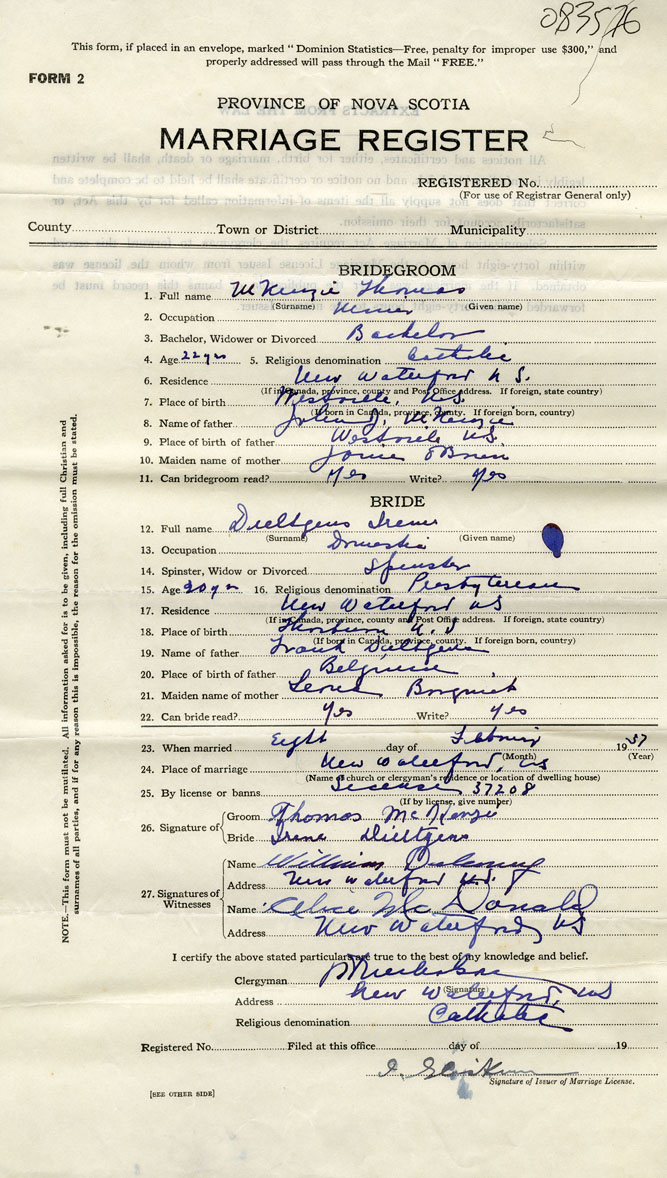 083576
This form, if placed in an envelope, marked "Dominion Statistics—Free, penalty for improper use $300," and
properly addressed will pass through the Mail "FREE."
FORM 2
PROVINCE OF NOVA SCOTIA
MARRIAGE REGISTER
REGISTERED No.
(For use of Registrar General only)
County Town or District Municipality
BRIDEGROOM
1. Full name McKenzie Thomas
(Surname) (Given name)
2. Occupation Miner
3. Bachelor, Widower or Divorced Bachelor
4. Age 22 yrs 5. Religious denomination Catholic
6. Residence New Waterford N S.
(If in Canada, province, county and Post Office address. If foreign, state country)
7. Place of birth Westville, N.S.
(If born in Canada, province, county. If foreign born, country)
8. Name of father John J. McKenzie
9. Place of birth of father Westville N.S.
10. Maiden name of mother O'Brien
11. Can bridegroom read? Yes Write? Yes
BRIDE
12. Full name Dieltgens Irene
(Surname) (Given name)
13. Occupation Domestic
14. Spinster, Widow or Divorced Spinster
15. Age 20 yrs 16. Religious denomination Presbyterian
17. Residence New Waterford NS
(If in Canada, province, county and Post Office address. If foreign, state country)
18. Place of birth Thorburn N.S
(If born in Canada, province, county. If foreign born, country)
19. Name of father Frank Dieltgens
20. Place of birth of father Belgium
21. Maiden name of mother
22. Can bride read? Yes Write? Yes
23. When married Eight day of February 1937
(Month) (Year)
24. Place of marriage New Waterford, NS
(Name of church or clergyman's residence or location of dwelling house)
25. By license or banns License 37208
(If by license, give number)
26. Signature of Groom Thomas McKenzie
Bride Irene Dieltgens
27. Signatures of Witnesses Name William
Address New Waterford N.S.
Name Alice McDonald
Address New Waterford, NS
I certify the above stated particulars are true to the best of my knowledge and belief.
Clergyman
(Signature)
Address New Waterford, NS
Religious denomination Catholic
Registered No. Filed at this office day of 19
Signature of Issuer of Marriage License.
[SEE OTHER SIDE]
NOTE.—This form must not be mutilated. All information asked for is to be given, including full Christian and
surnames of all parties, and if for any reason this is impossible, the reason for the omission must be stated.